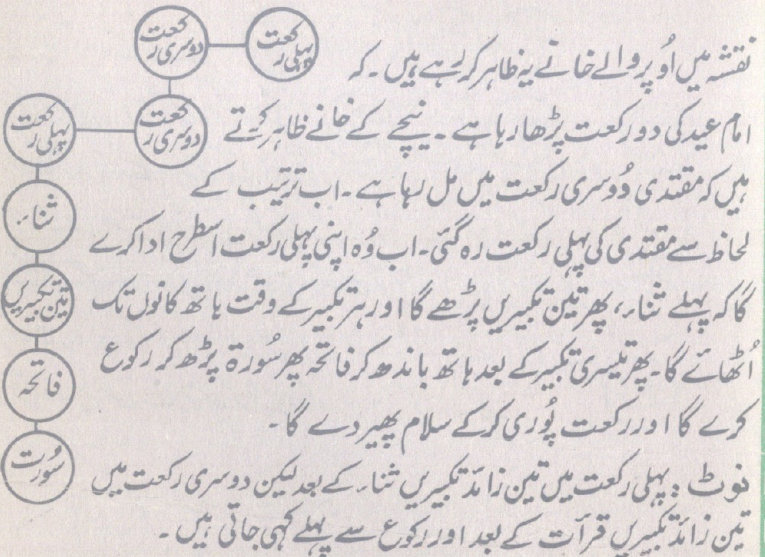 پہلی رکعت
دوسری رکعت
نقشہ میں اُوپر والے خانے یہ ظاہر کر رہے ہیں ۔ کہ
امام عید کی دو رکعت پڑھا رہا ہے ۔ نیچے کے خانے ظاہر کرتے
دوسری رکعت
پہلی رکعت
ہیں کہ مقتدی دُوسری رکعت میں مل رہا ہے ۔ اب ترتیب کے
ثناء
لحاظ سے مقتدی کی پہلی رکعت رہ گئی ۔ اب وُہ اپنی پہلی رکعت اسطرح ادا کرے
گا کہ پہلے ثناء ، پھر تین تکبیریں پڑھے گا اور ہر تکبیر کے وقت ہاتھ کانوں تک
تین تکبیریں
اُٹھائے گا ۔ پھر تیسری تکبیر کے بعد ہاتھ باندھ کر فاتحہ پھر سُورۃ پڑھ کر رکوع
فاتحہ
کرے گا اور رکعت پُوری کر کے سلام پھیر دے گا ۔
سُورت
نوٹ : پہلی رکعت میں تین زائد تکبیریں ثناء کے بعد لیکن دوسری رکعت میں
تین زائد تکبیریں قرأت کے بعد اور رکوع سے پہلے کہی جاتی ہیں ۔